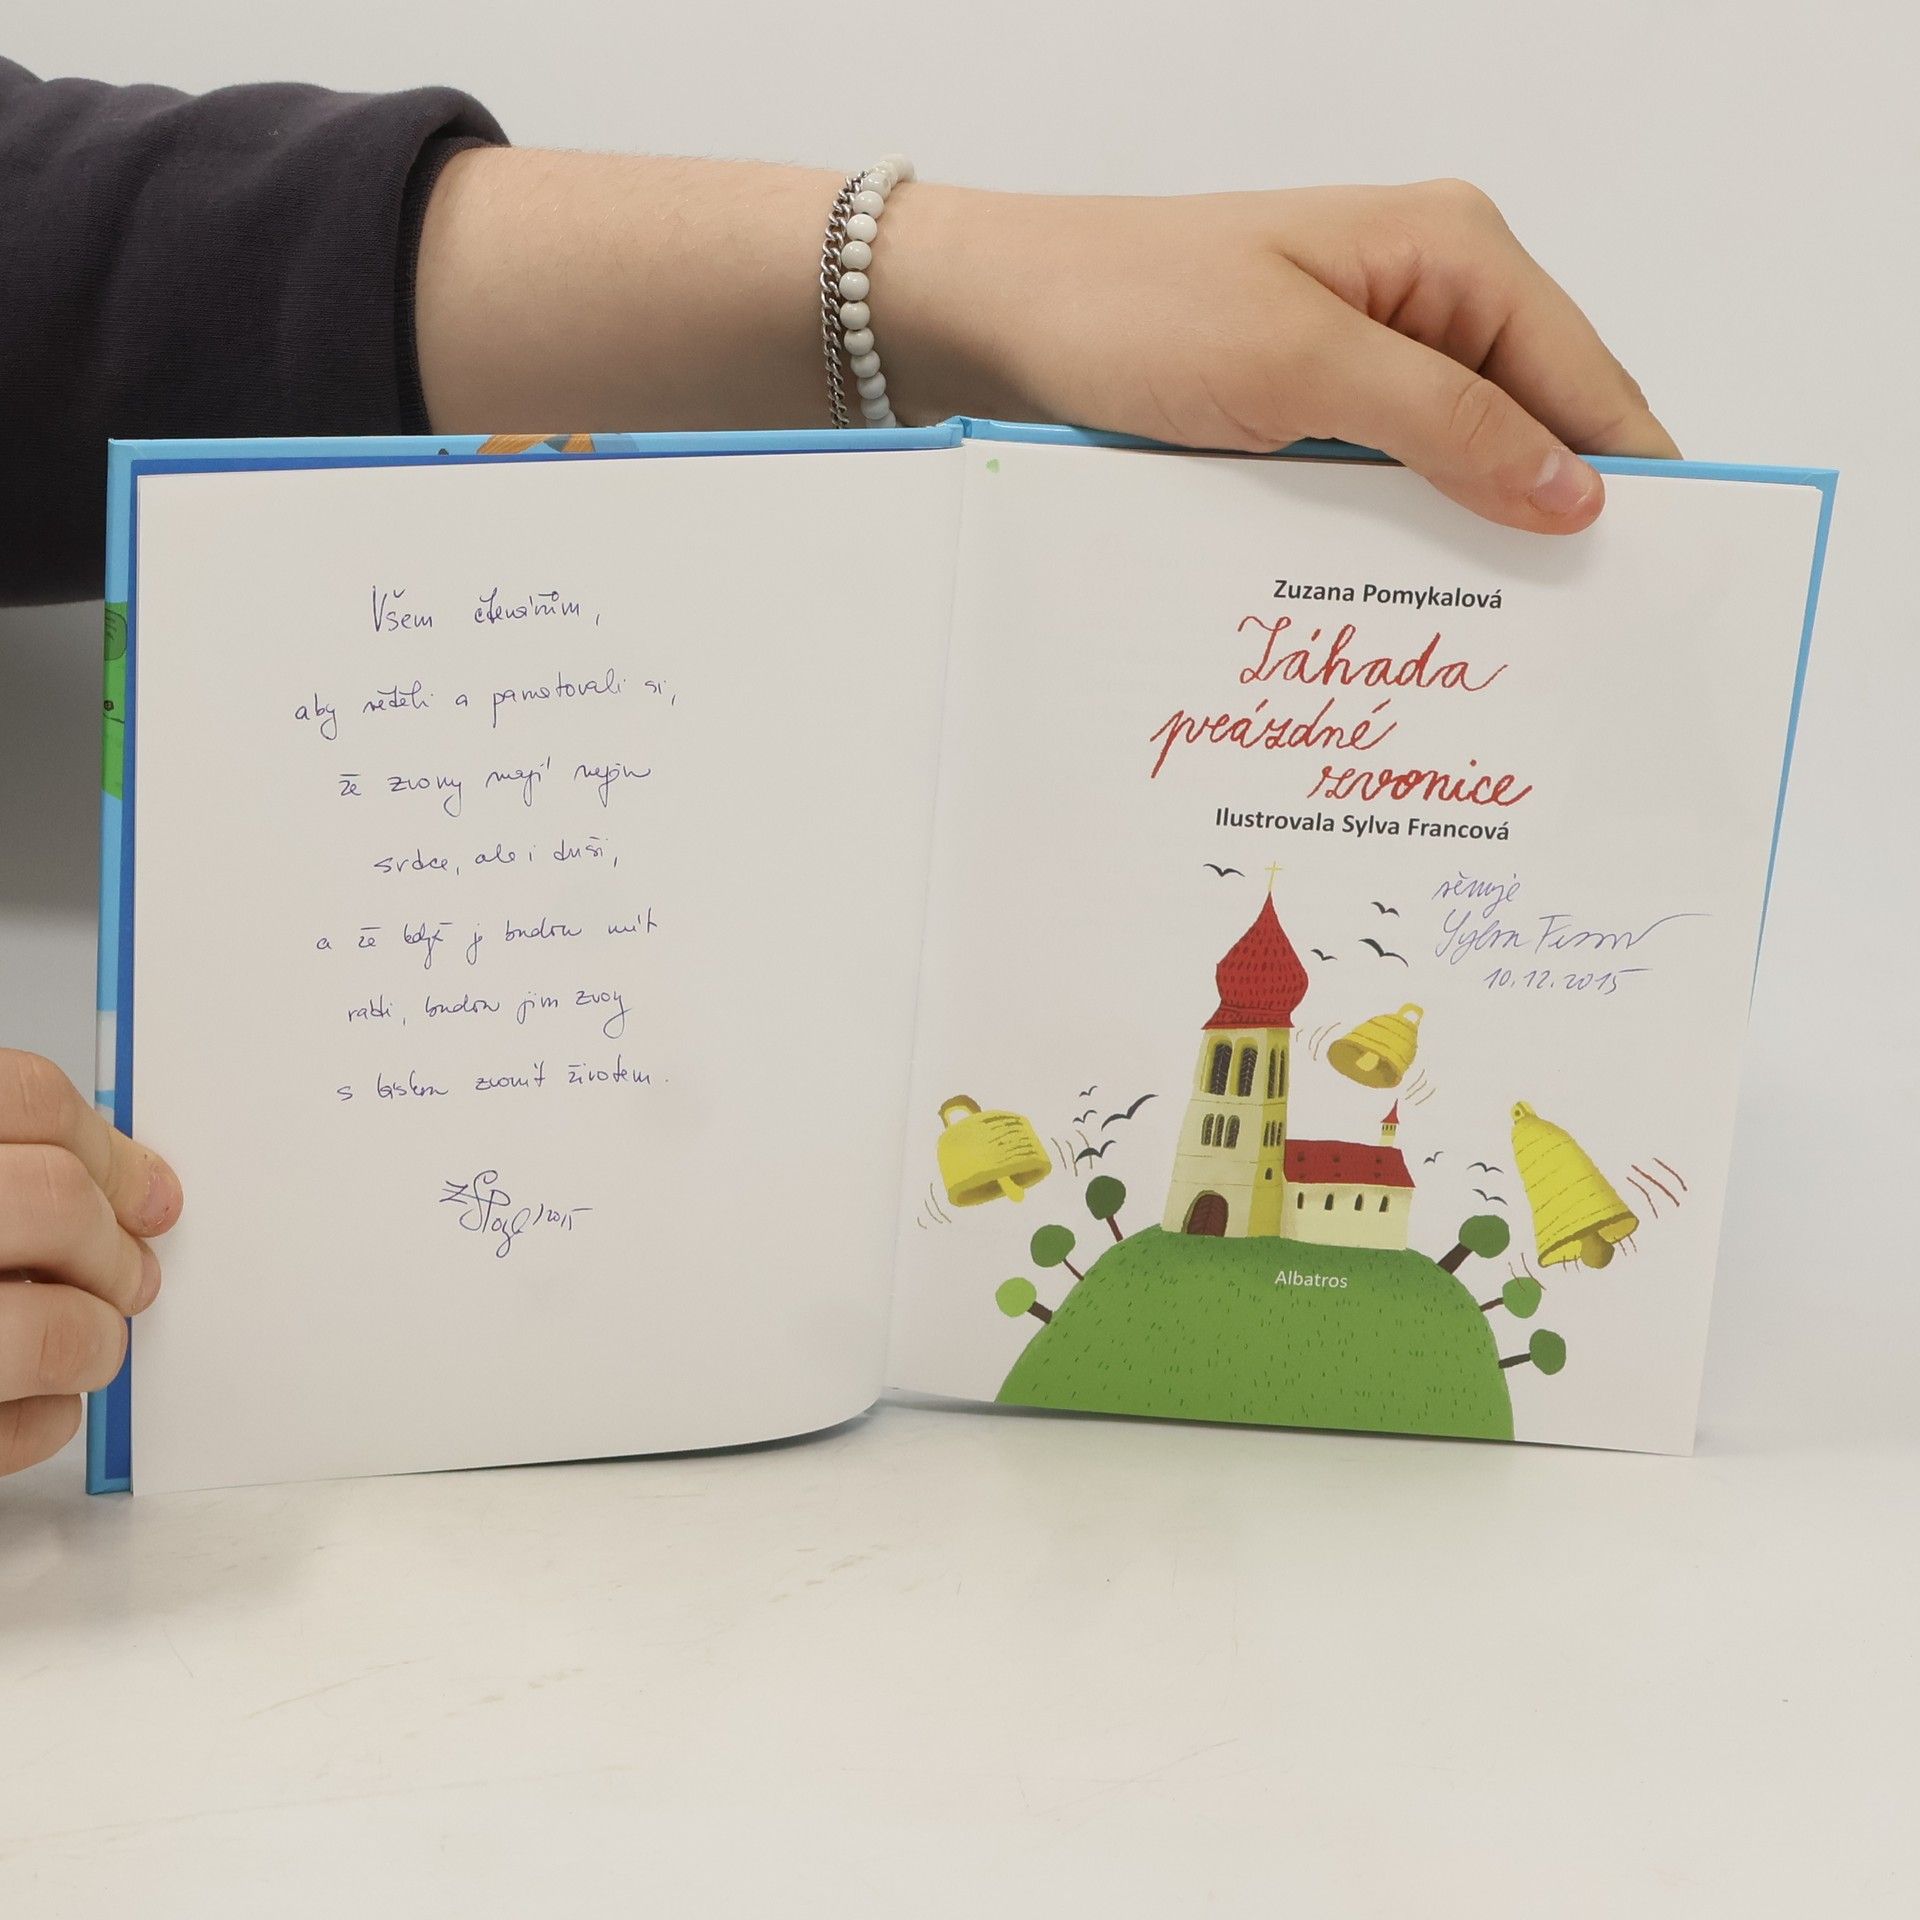 Všem čtenářům,
aby věděli a pamatovali si,
že zvony mají nejen
srdce, ale i duši,
a že když je budou mít
rádi, budou jim zvony
s láskou zvonit životem.
2015
Zuzana Pomykalová
Záhada
prázdné
zvonice
Ilustrovala Sylva Francová
věnuje
Sylva Francová
10.12.2015
Albatros